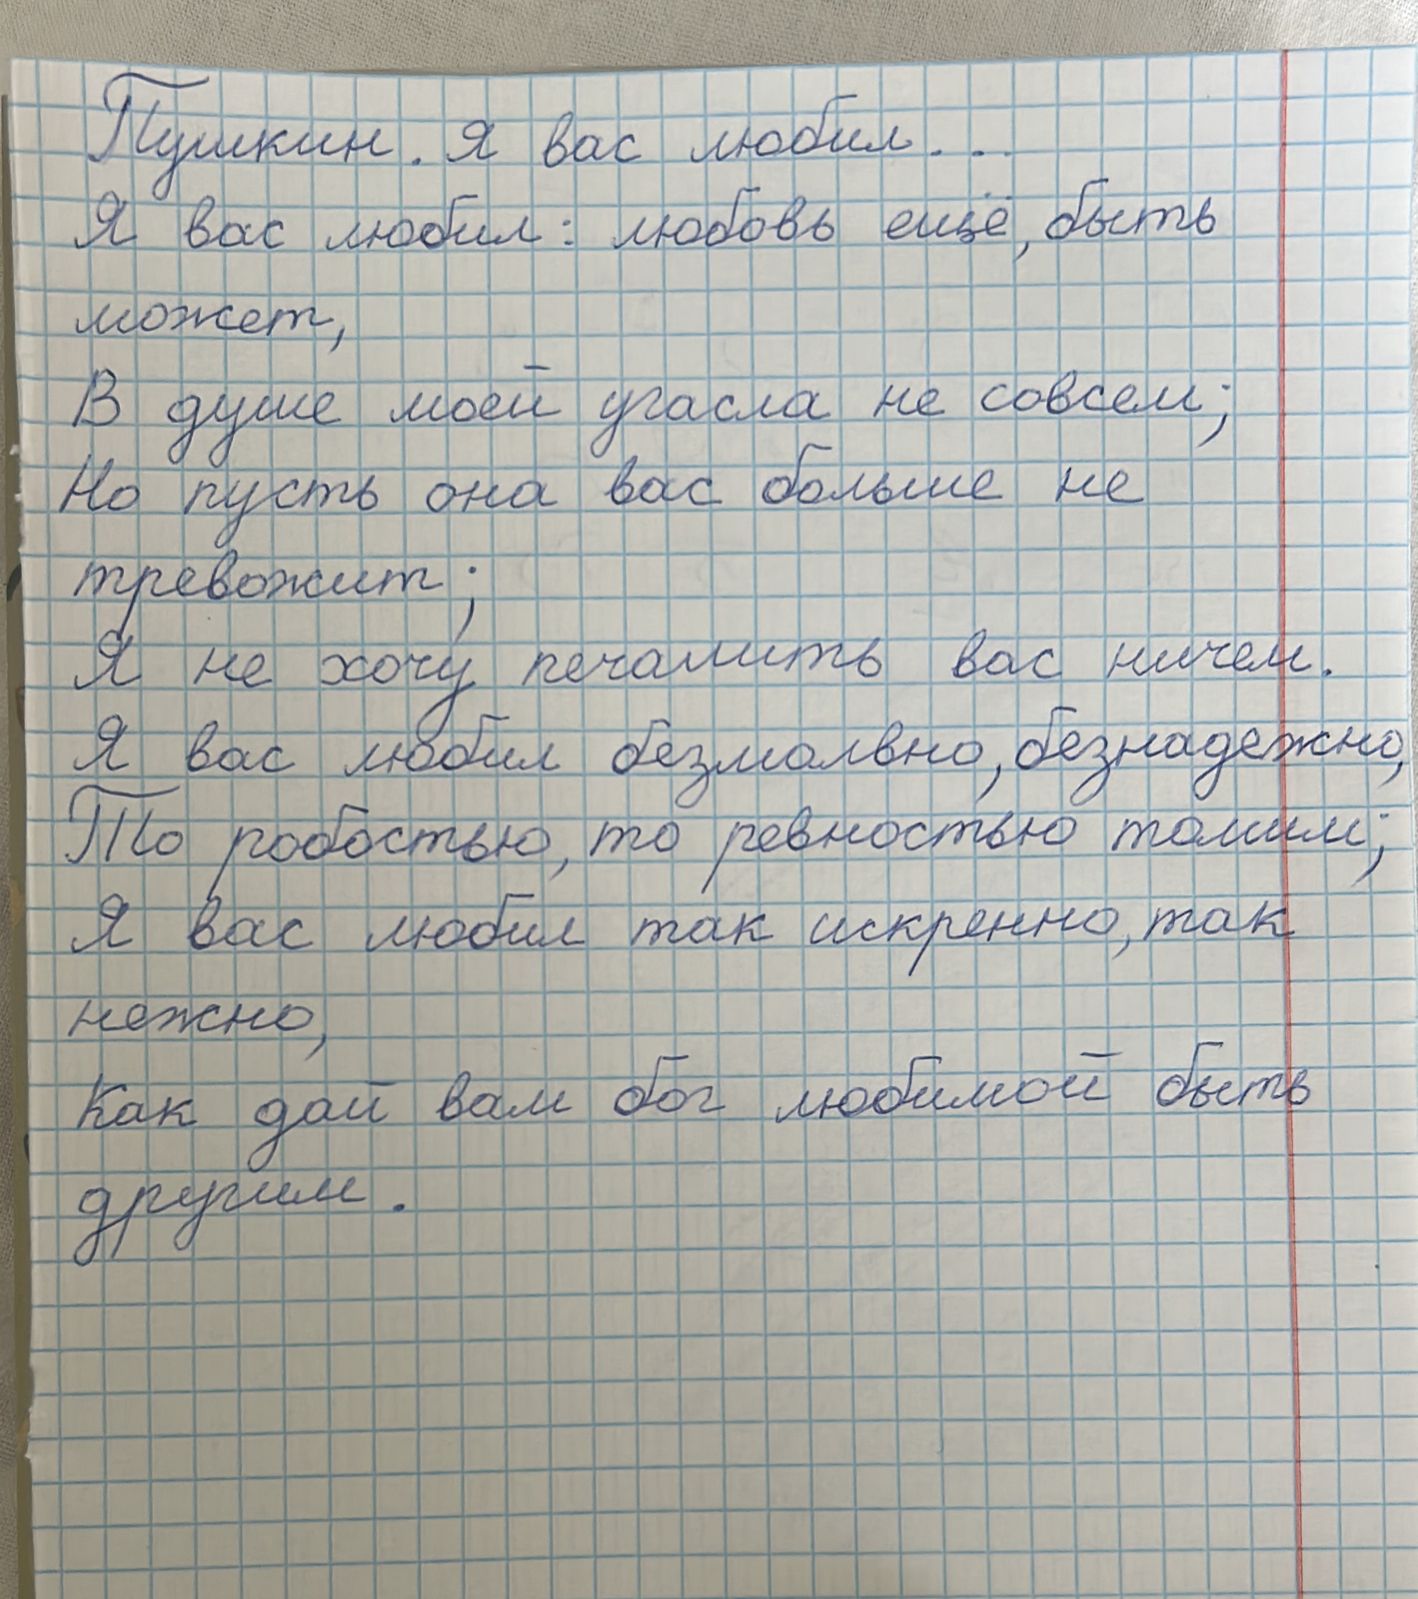 Пушкин. Я вас любил...
Я вас любил: любовь ещё, быть
может,
В душе моей угасла не совсем;
Но пусть она вас больше не
тревожит;
Я не хочу печалить вас ничем.
Я вас любил безмолвно, безнадежно,
То робостью, то ревностью томим;
Я вас любил так искренно, так
нежно,
Как дай вам бог любимой быть
другим.